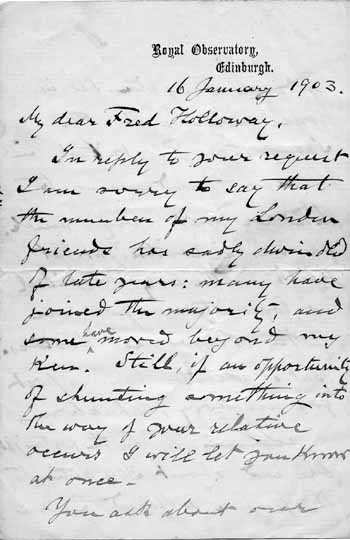 Royal Observatory,
Edinburgh.
16 January 1903.
My dear Fred Holloway,
In reply to your request
I am sorry to say that
the number of my London
friends has sadly dwindled
of late years: many have
joined the majority, and
some have moved beyond my
Ken. Still, if an opportunity
of shunting something into
the way of your relative
occurs I will let you know
at once -
You ask about our